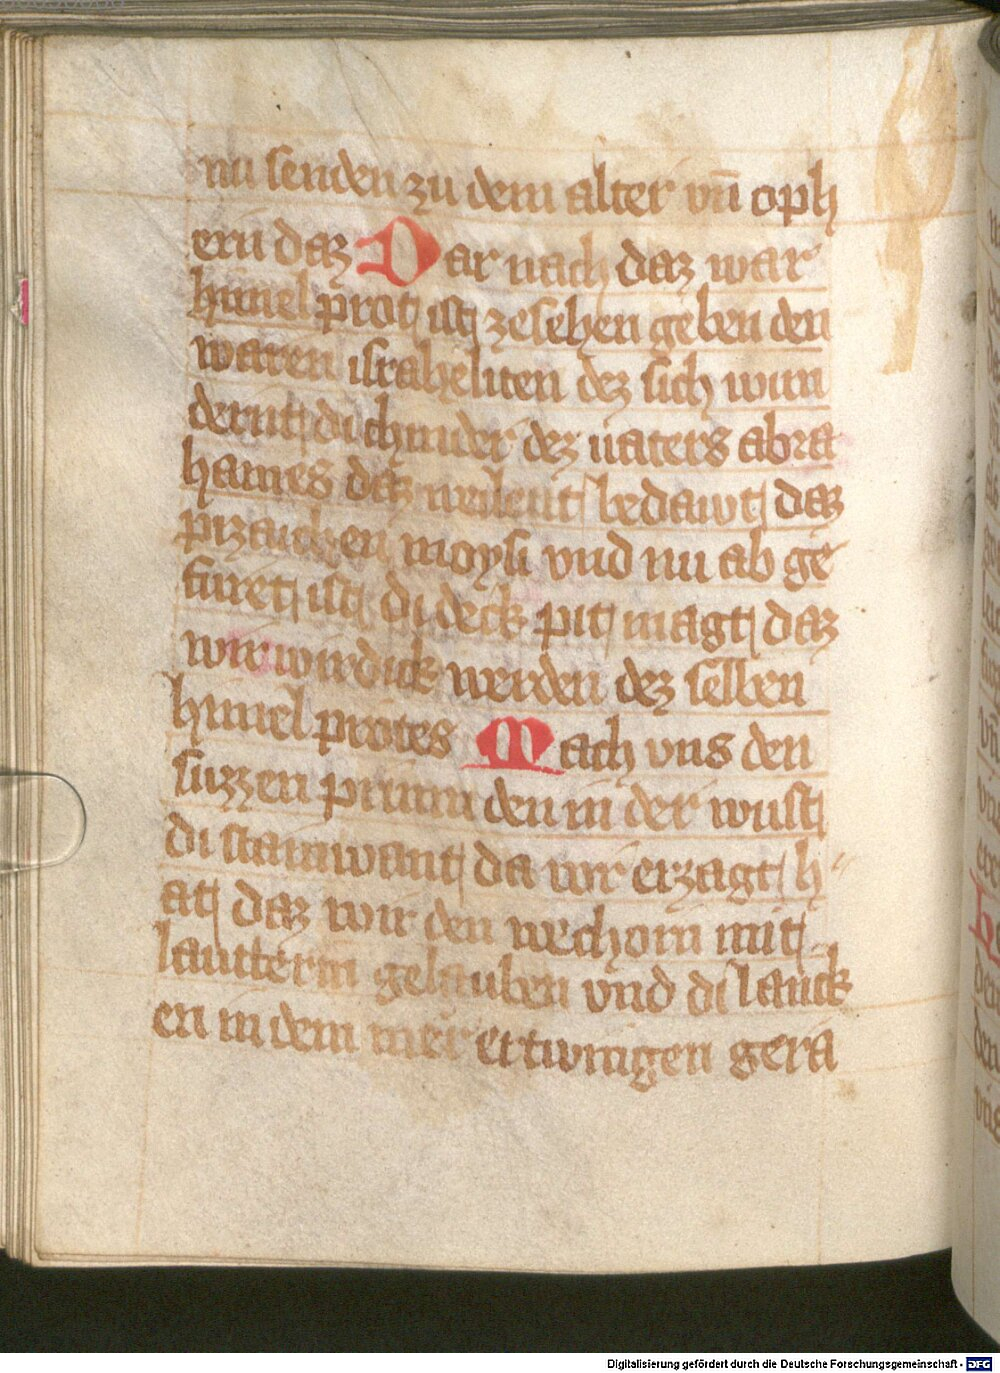 nu senden zu dem alter vn̄ oph
ern daz Dar nach daz war
himel prot ist zesehen geben den
waren israheliten dez sich wun
dernt di chinder dez uaters abra
hames daz weilent bedawt daz
pizaichen moysi vnd nu ab ge
furet ist di deck pit magt daz
wir wirdick werden dez selben
himel protes Mach vns den
suzzen prunn den in der wust
di stainwant da vor erzagt h
at daz wir den wechorn mit
lautterm gelauben vnd di lanck
en in dem mer ertwingen gera
Digitalisierung gefördert durch die Deutsche Forschungsgemeinschaft - DFG